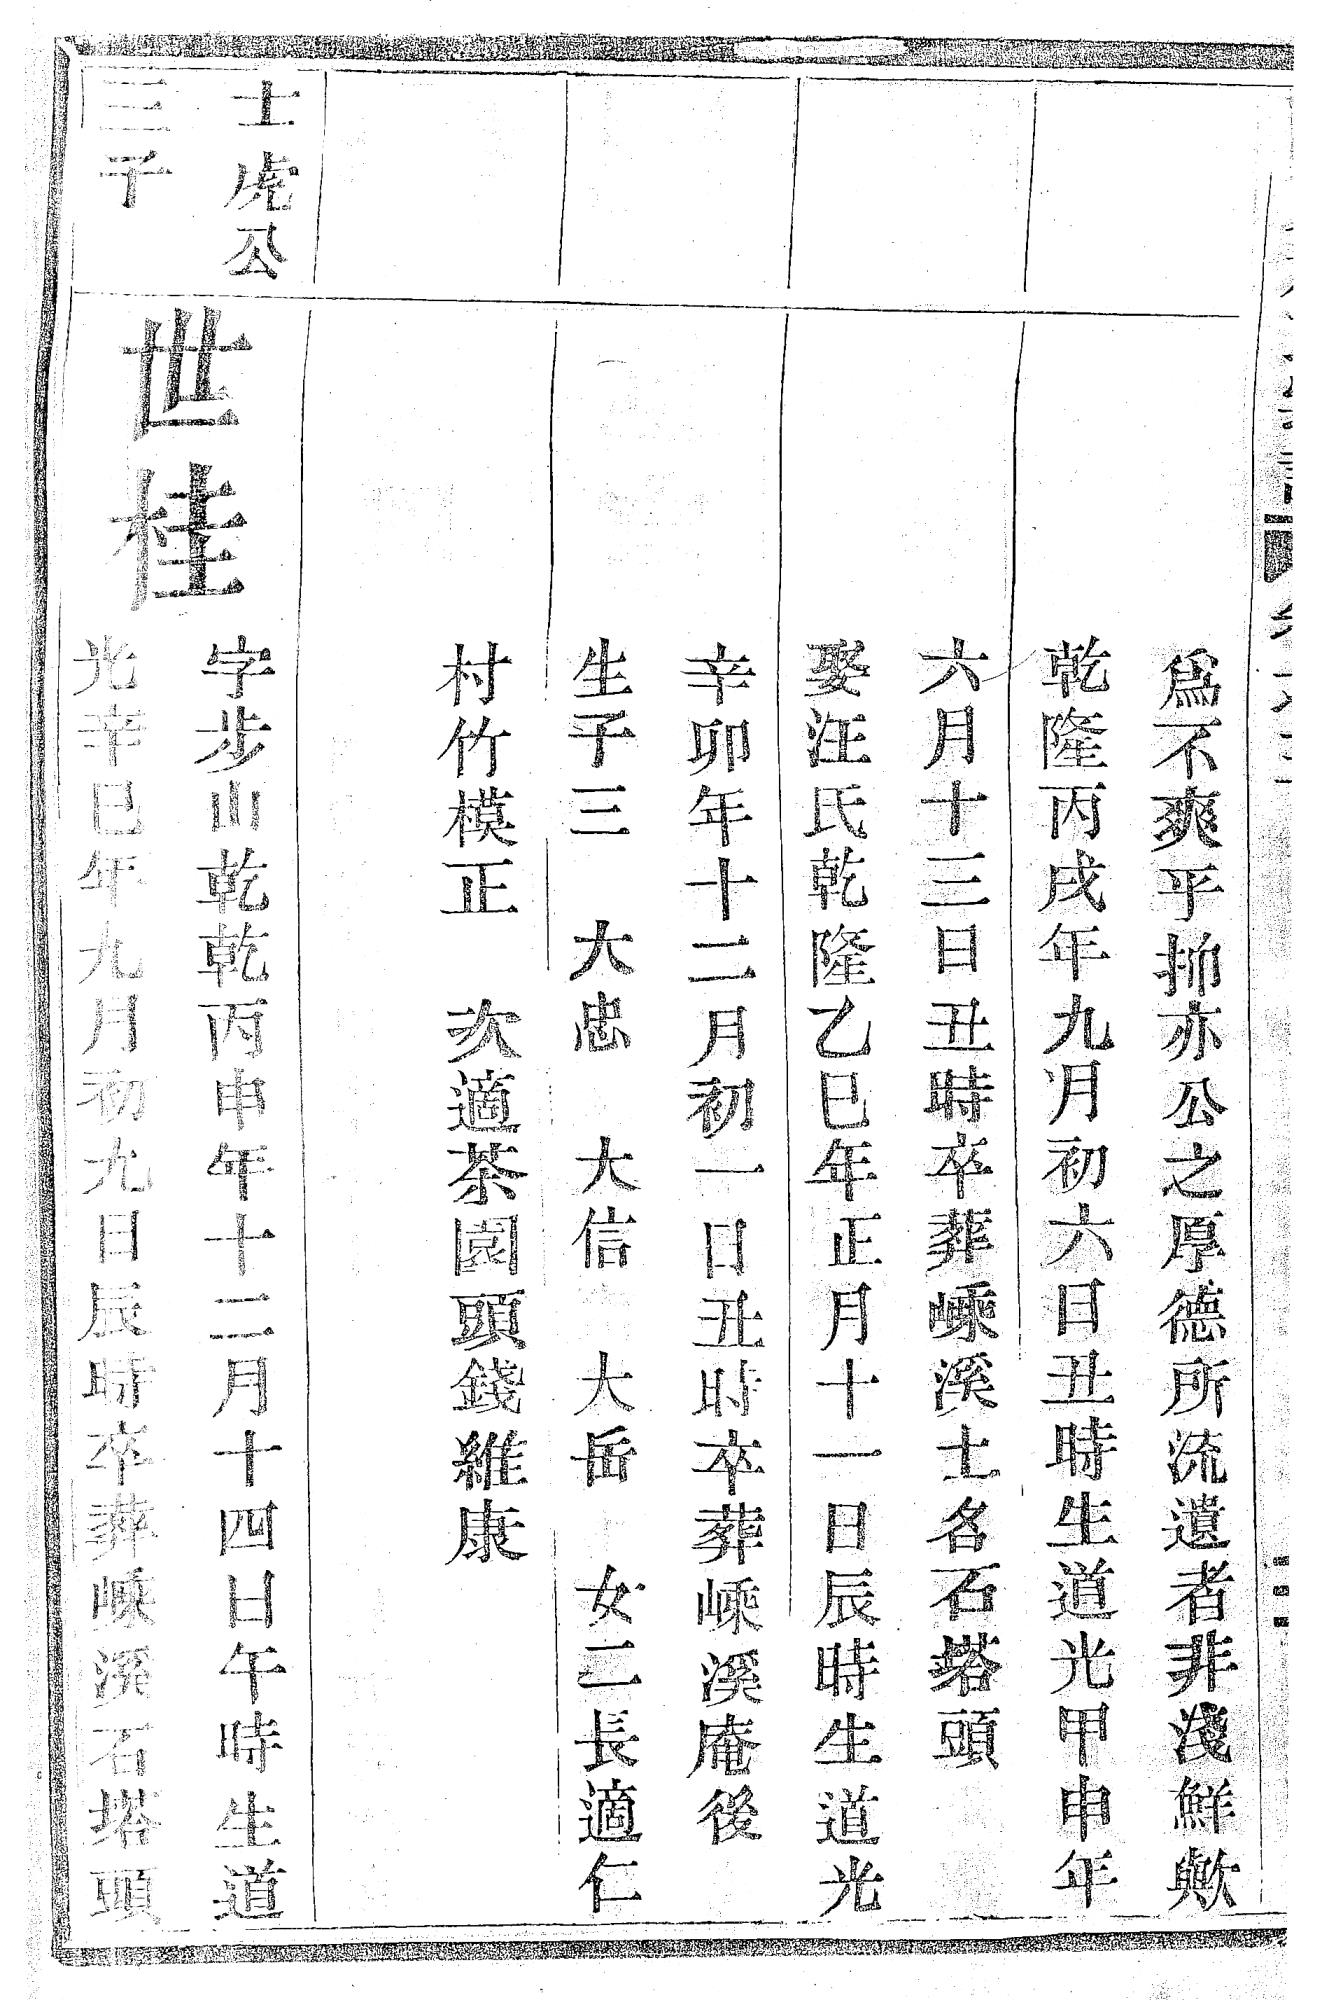 爲不爽乎抑亦公之厚德所流遺者非淺鮮歟
乾隆丙戌年九月初六日丑時生道光甲申年
六月十三日丑時卒葬嵊溪士名石塔頭
娶汪氏乾隆乙巳年正月十一日辰時生道光
辛卯年十二月初一日丑時卒葬嵊溪庵後
生子三　大忠　大信　大岳　女二長適仁
村竹模正　次適茶園頭錢維康
士虎公
三子
世桂
字步山乾乾丙申年十二月十四日午時生道
光辛巳年九月初九日辰時卒葬嵊溪石塔頭